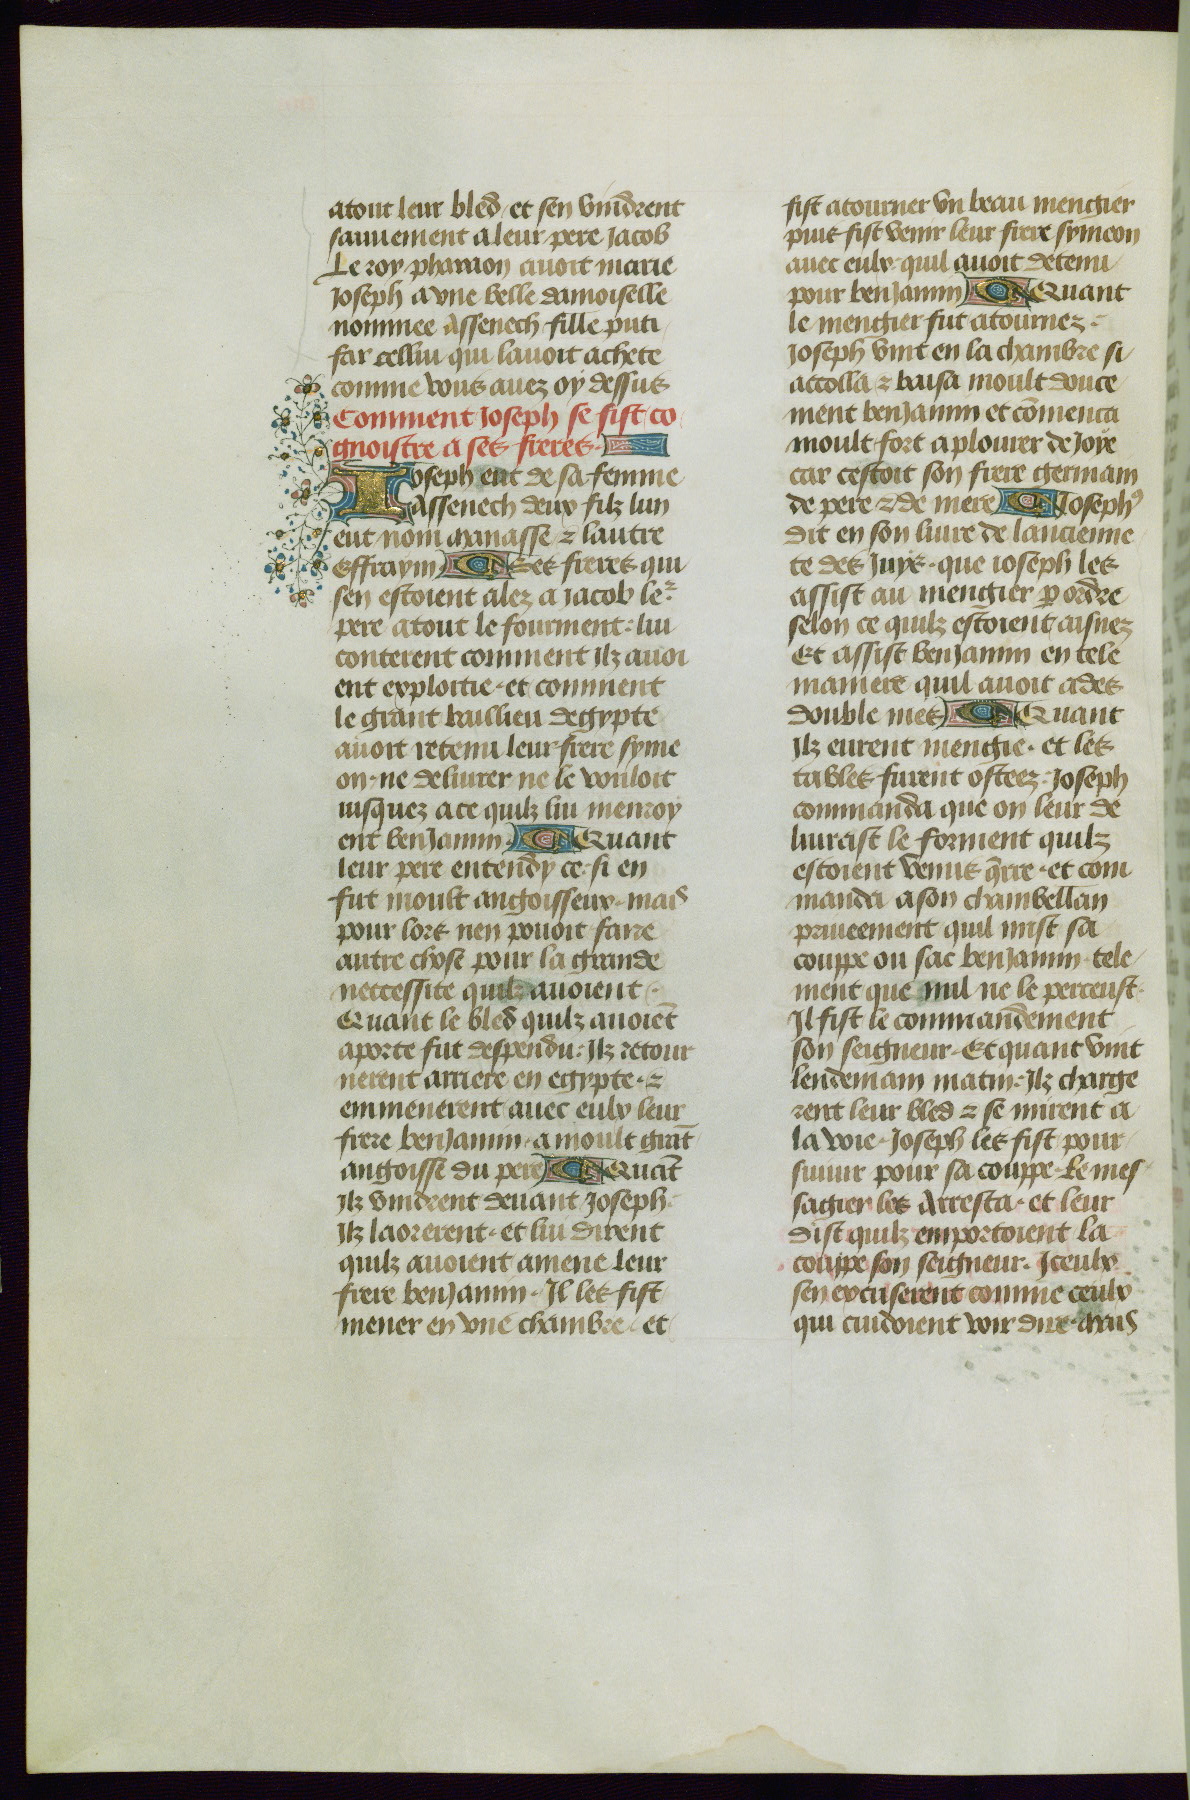 atout leur bled et sen vindrent
sauuement a leur pere Jacob
Le roy pharaon auoit marie
Joseph a vne belle damoiselle
nommee Assenech fille puti
far cellui qui lauoit achete
comme vous auez oy dessus
Comment Joseph se fist co
gnoistre a ses freres.
Joseph eut de sa femme
Assenech deux filz lun
eut nom manasse ⁊ lautre
Effraym Ses freres qui
sen estoient alez a Jacob le᷑
pere atout le fourment: lui
conterent comment Ilz auoi
ent exploitie. et comment
le grant baillieu degypte
auoit retenu leur frere syme
on. ne deliurer ne le vouloit
iusquez a ce quilz lui menroy
ent benJamin. Quant
leur pere entendy ce. si en
fut moult angoisseux. mais
pour lors nen pouoit faire
autre chose pour la grande
neccessite quilz auoient.
Quant le bled quilz auoiēt
aporte fut despendu: Ilz retour
nerent arriere en egypte. ⁊
emmenerent auec eulx leur
frere benJamin. a moult grāt
angoisse du pere Quāt
Ilz vindrent deuant Joseph.
Ilz laorerent. et lui dirent
quilz auoient amene leur
frere benJamin. Il les fist
mener en vne chambre. et
fist atourner vn beau mengier
puis fist venir leur frere symeon
auec eulx. quil auoit detenu
pour benJamin Quant
le mengier fut atournez.
Joseph vint en la chambre si
accolla ⁊ baisa moult douce
ment benJamin et cōmenca
moult fort a plourer de Joye
car cestoit son frere germain
de pere ⁊ de mere Josephꝰ
dit en son liure de lancienne
te des Juys. que ioseph les
assist au mengier ꝑ ordre
selon ce quilz estoient aisnez
Et assist benJamin en tele
maniere quil auoit ades
double mes Quant
Ilz eurent mengie. et les
tables furent osteez: Joseph
commanda que on leur de
liurast le forment quilz
estoient venus q̄rre. et com
manda a son chambellan
priueement quil mist sa
couppe ou sac benJamin. tele
ment que nul ne le perceust.
Il fist le commandement
son seigneur. Et quant vint
lendemain matin: Ilz charge
rent leur bled ⁊ se mirent a
la voie. Joseph les fist pour
suiuir pour sa couppe. Le mes
sagier les Arresta. et leur
dist quilz emportoient la
couppe son seigneur. Iceulx
sen excuserent comme ceulx
qui cuidoient voir dire. mais